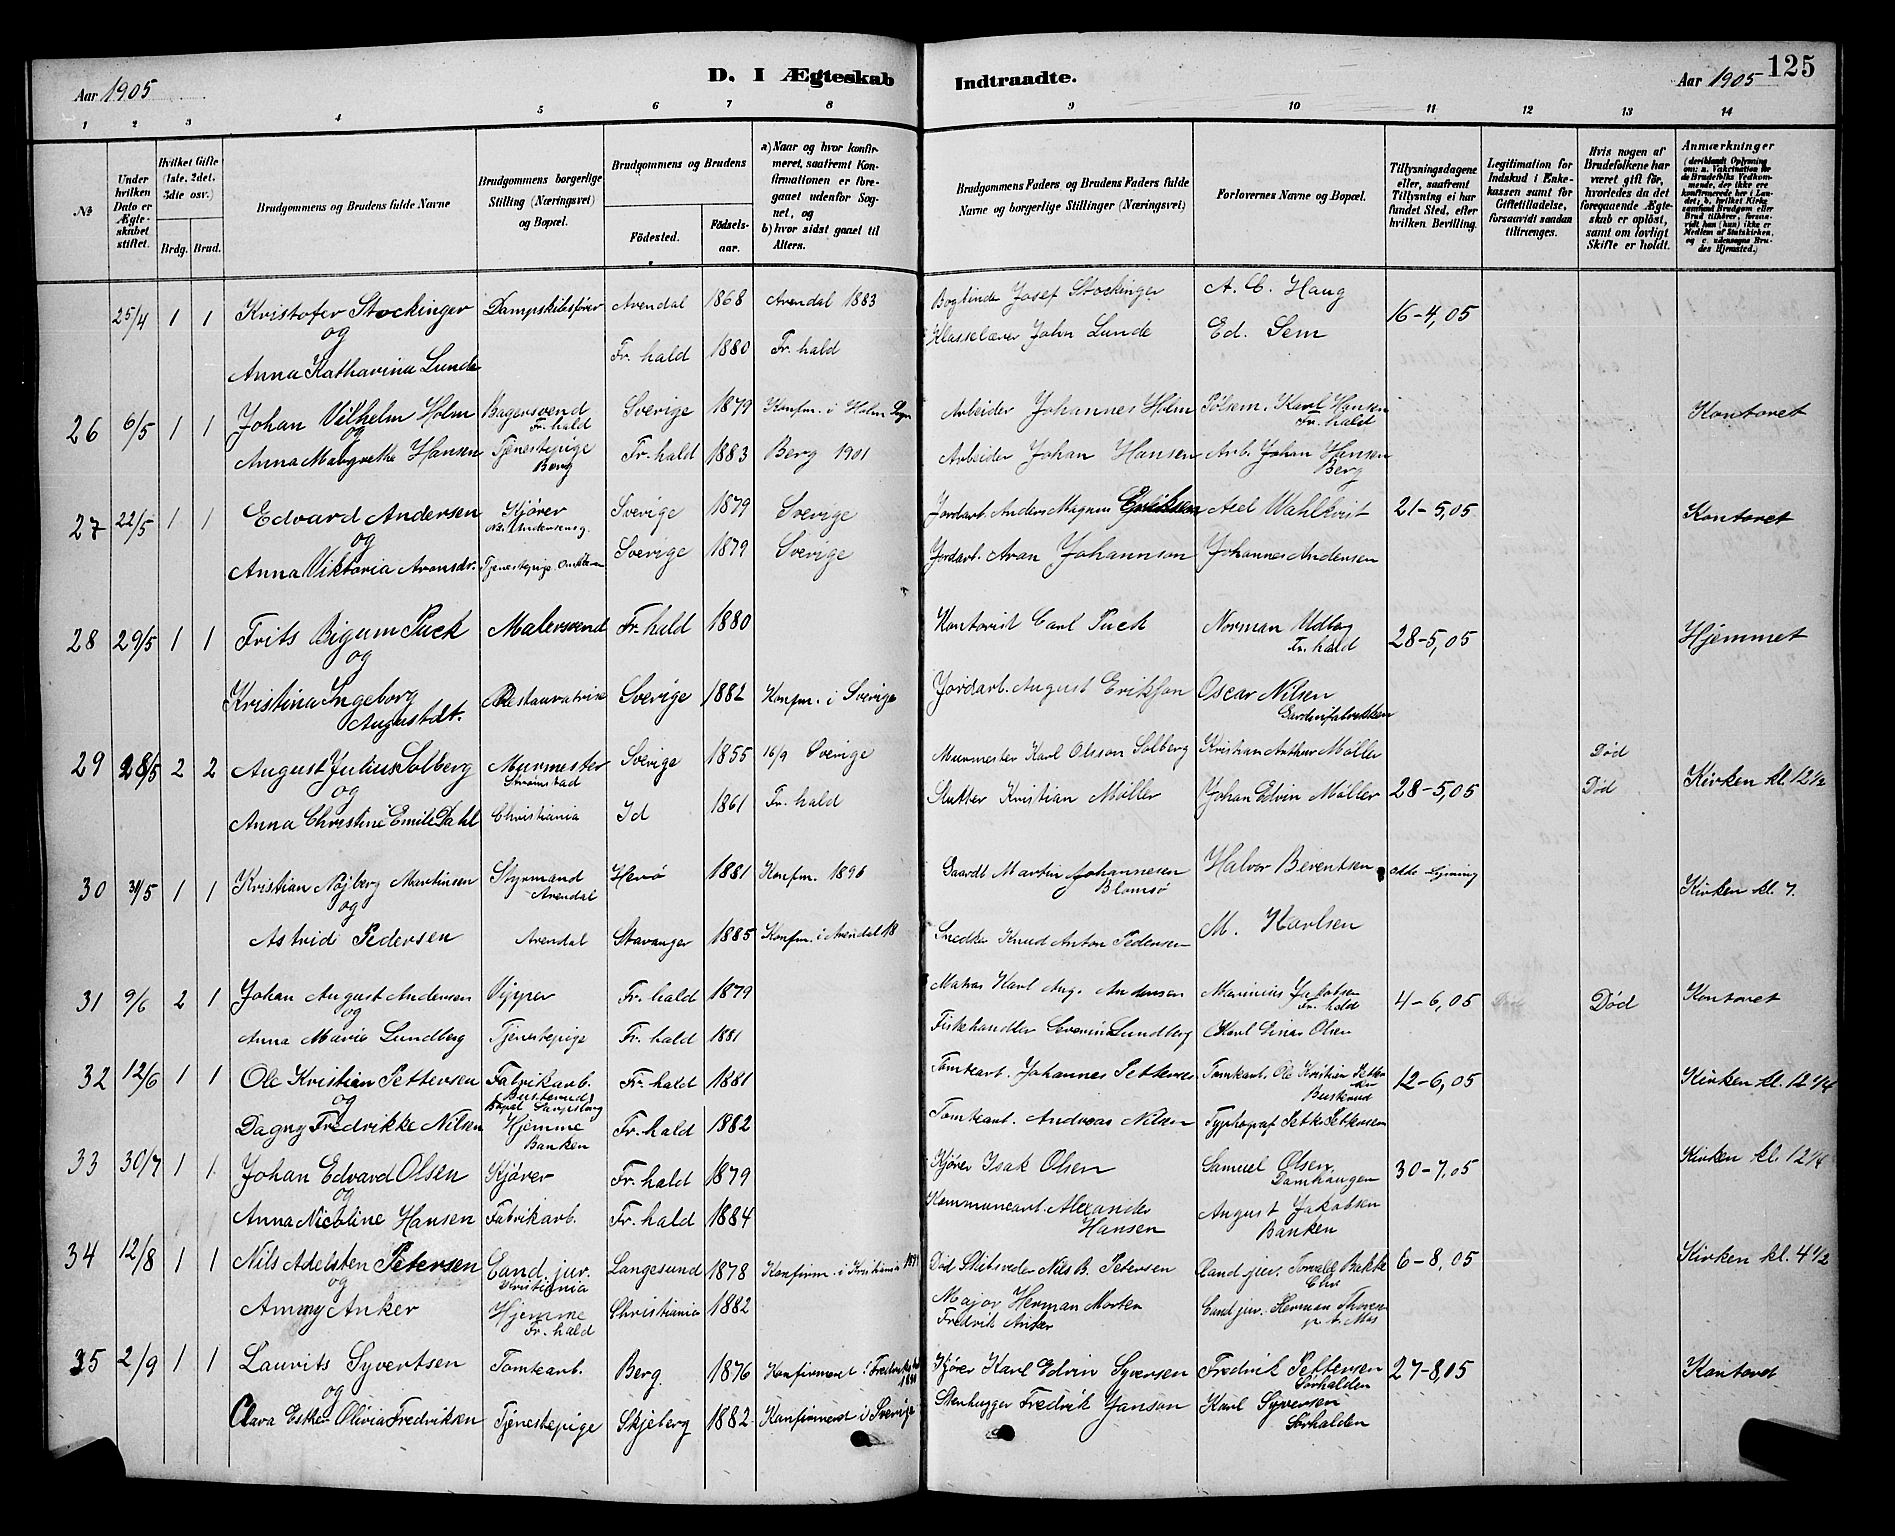 Aar 1905
D. I Ægteskab
Indtraadte.
Aar 1905
125
1 2 3 4 5 6 7 8 9 10 11 12 13 14
№
Under hvilken Dato er Ægteskabet stiftet.
Hvilket Gifte (1ste, 2det, 3die osv.)
Brdg. Brud.
Brudgommens og Brudens fulde Navne
Brudgommens borgerlige Stilling (Næringsvei) og Bopæl.
Brudgommens og Brudens
Födested.
Födsels-aar.
a) Naar og hvor konfirmeret, saafremt Konfirmationen er foregaaet udenfor Sognet, og
b) hvor sidst gaaet til Alters.
Brudgommens Faders og Brudens Faders fulde Navne og borgerlige Stillinger (Næringsvei)
Forlovernes Navne og Bopæl.
Tillysningsdagene eller, saafremt Tillysning ei har fundet Sted, efter hvilken Bevilling.
Legitimation for Indskud i Enkekassen samt for Giftetilladelse, forsaavidt saadan tiltrænges.
Hvis nogen af Brudefolkene har været gift för, hvorledes da det foregaaende Ægteskab er oplöst, samt om lovligt Skifte er holdt.
Anmærkninger
(deriblandt Oplysning om: a. Vakcination for de Brudefolks Vedkommende, der ikke ere konfirmerede her i Landet; b. hvilket Kirkesamfund Brudgom eller Brud tilhører, forsaavidt han (hun) ikke er Medlem af Statskirken, og c. udensogns Brudes Hjemsted.)
25/4 1 1 Kristofer Stockinger Arendal 1868 Arendal 1883 Josef Stockinger A. C. Haug 16-4,05
og
Anna Katharina Lunde Fr. hald 1880 Fr. hald John Lunde Ed. Sem
26 6/5 1 1 Johan Vilhelm Holm Bagersvend Fr. hald Sverige 1879 Konfm. i Holm Arbeider Johannes Holm Karl Hansen Fr. hald Kontoret
og
Anna Margrethe Hansen Tjenestepige Berg Fr. hald 1883 Berg 1901 Arbeider Johan Hansen Arb. Johan Hansen Berg
27 22/5 1 1 Edvard Andersen Kjører Sverige 1879 Sverige Jordarb. Anders Magnus Eriksson Axel Wahlkvist 21-5,05 Kontoret
og
Anna Viktoria Aronsdr. Tjenestepige Sverige 1879 Sverige Jordarb. Aron Johannson Johannes Andersen
28 29/5 1 1 Frits Bigum Puck Malersvend Fr. hald 1880 Kontorist Carl Puck Norman Fr. hald 28-5,05 Hjemmet
og
Kristina Ingeborg Augustdt. Restauratrice Sverige 1882 Konfm. i Sverige Jordarb. August Eriksson Oscar Nilsen Gardinfabrikken
29 28/5 2 2 August Julius Solberg Murmester Strømstad Sverige 1855 16/9 Sverige Murmester Karl Olsson Solberg Kristian Arthur Møller Død
og
Anna Christine Emilie Dahl Christiania Id 1861 Fr. hald Slutter Kristian Møller Johan Edvin Møller 28-5,05 Død Kirken kl. 12 1/2
30 31/5 1 1 Kristian Nojberg Martinsen Styrmand Arendal Herø 1881 Konfm. 1896 Gaardb. Martin Johannesen Blomsø Halvor Berentsen Kirken kl. 7.
og
Astrid Pedersen Arendal Stavanger 1885 Konfm. i Arendal 18 Snedker Knud Anton Pedersen M. Karlsen
31 9/6 2 1 Johan August Andersen Vipper Fr. hald 1879 Matros Karl Aug. Andersen Marinius Jakobsen Fr. hald 4-6,05 Død Kontoret
og
Anna Marie Lundberg Tjenestepige Fr. hald 1881 Fiskehandler Severin Lundberg Karl Einar Olsen
32 12/6 1 1 Ole Kristian Pettersen Fabrikarb. Buskerud, Bopæl Sarpsborg Fr. hald 1881 Tomtearb. Johannes Pettersen Tomtearb. Ole Kristian Pettersen Buskerud 12-6,05 Kirken kl. 12 1/4
og
Dagny Fredrikke Nilsen Hjemme Banken Fr. hald 1882 Tomtearb. Andreas Nilsen Typhograf Pettersen
33 30/7 1 1 Johan Edvard Olsen Kjører Fr. hald 1879 Kjører Isak Olsen Samuel Olsen, Damhaugen 30-7,05 Kirken kl. 12 1/4
og
Anna Nicoline Hansen Fabrikarb. Fr. hald 1884 Kommunearb. Alexander Hansen August Jakobsen Banken
34 12/8 1 1 Nils Adelsten Petersen Cand. jur. Kristiania Langesund 1878 Konfirm. i Kristiania Død Skibsreder Nils B. Petersen Cand jur. Torvald Bakke Chr 6-8,05 Kirken kl. 4 1/2
og
Ammy Anker Hjemme Fr. hald Christiania 1882 Major Herman Morten Fredrik Anker Cand jur. Herman
35 2/9 1 1 Laurits Syvertsen Tomtearb. Berg 1876 Konfirmeret i Kjører Karl Edvin Syversen Fredrik Pettersen Sørhalden 27-8,05 Kontoret
og
Clara Esther Olivia Fredriksen Tjenestepige Skjeberg 1882 Konfirmeret i Sverige Stenhugger Fredrik Janson Karl Syversen Sørhalden